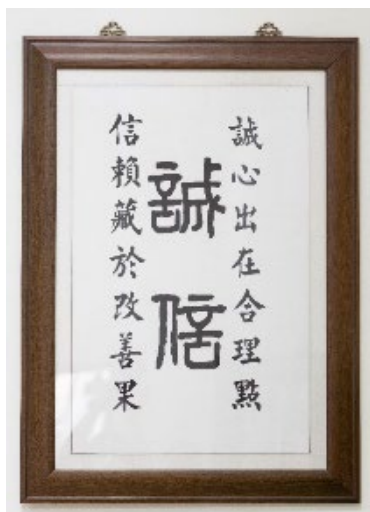 誠心出在合理點
誠信
信賴藏於改善果